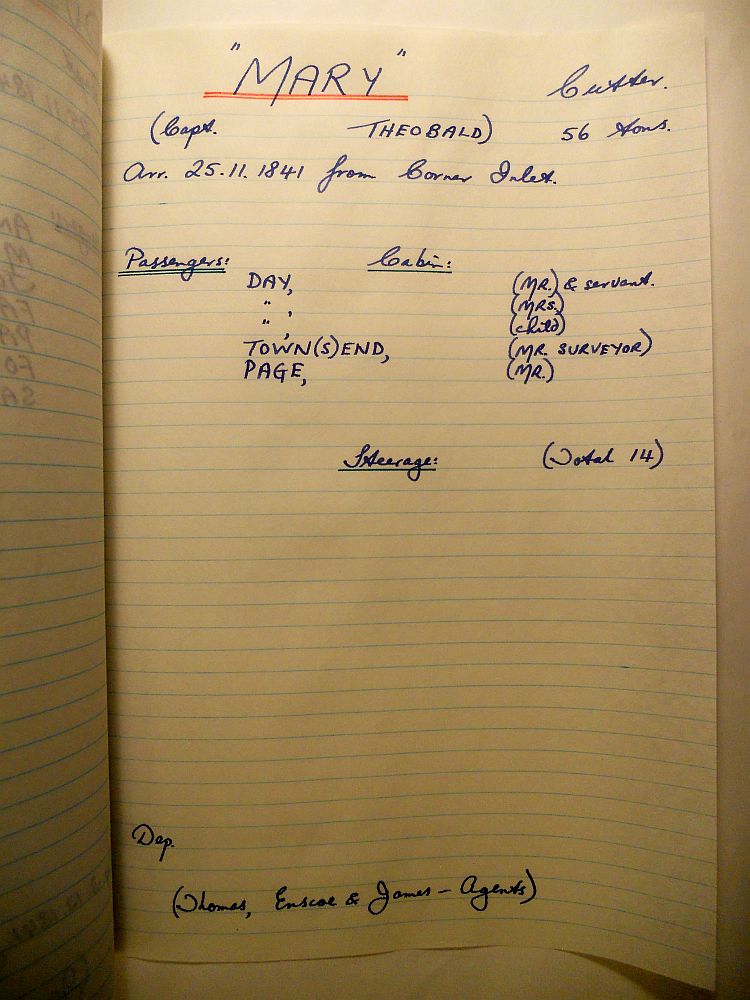 "MARY" Cutter.
(Capt. THEOBALD) 56 tons.
Arr. 25.11.1841 from Corner Inlet.
Passengers: Cabin:
DAY, (MR.) & servant.
" , (MRS.)
" , (child)
TOWN(S)END, (MR. SURVEYOR)
PAGE, (MR.)
Steerage: (Total 14)
Dep.
(Thomas, Enscoe & James - Agents)